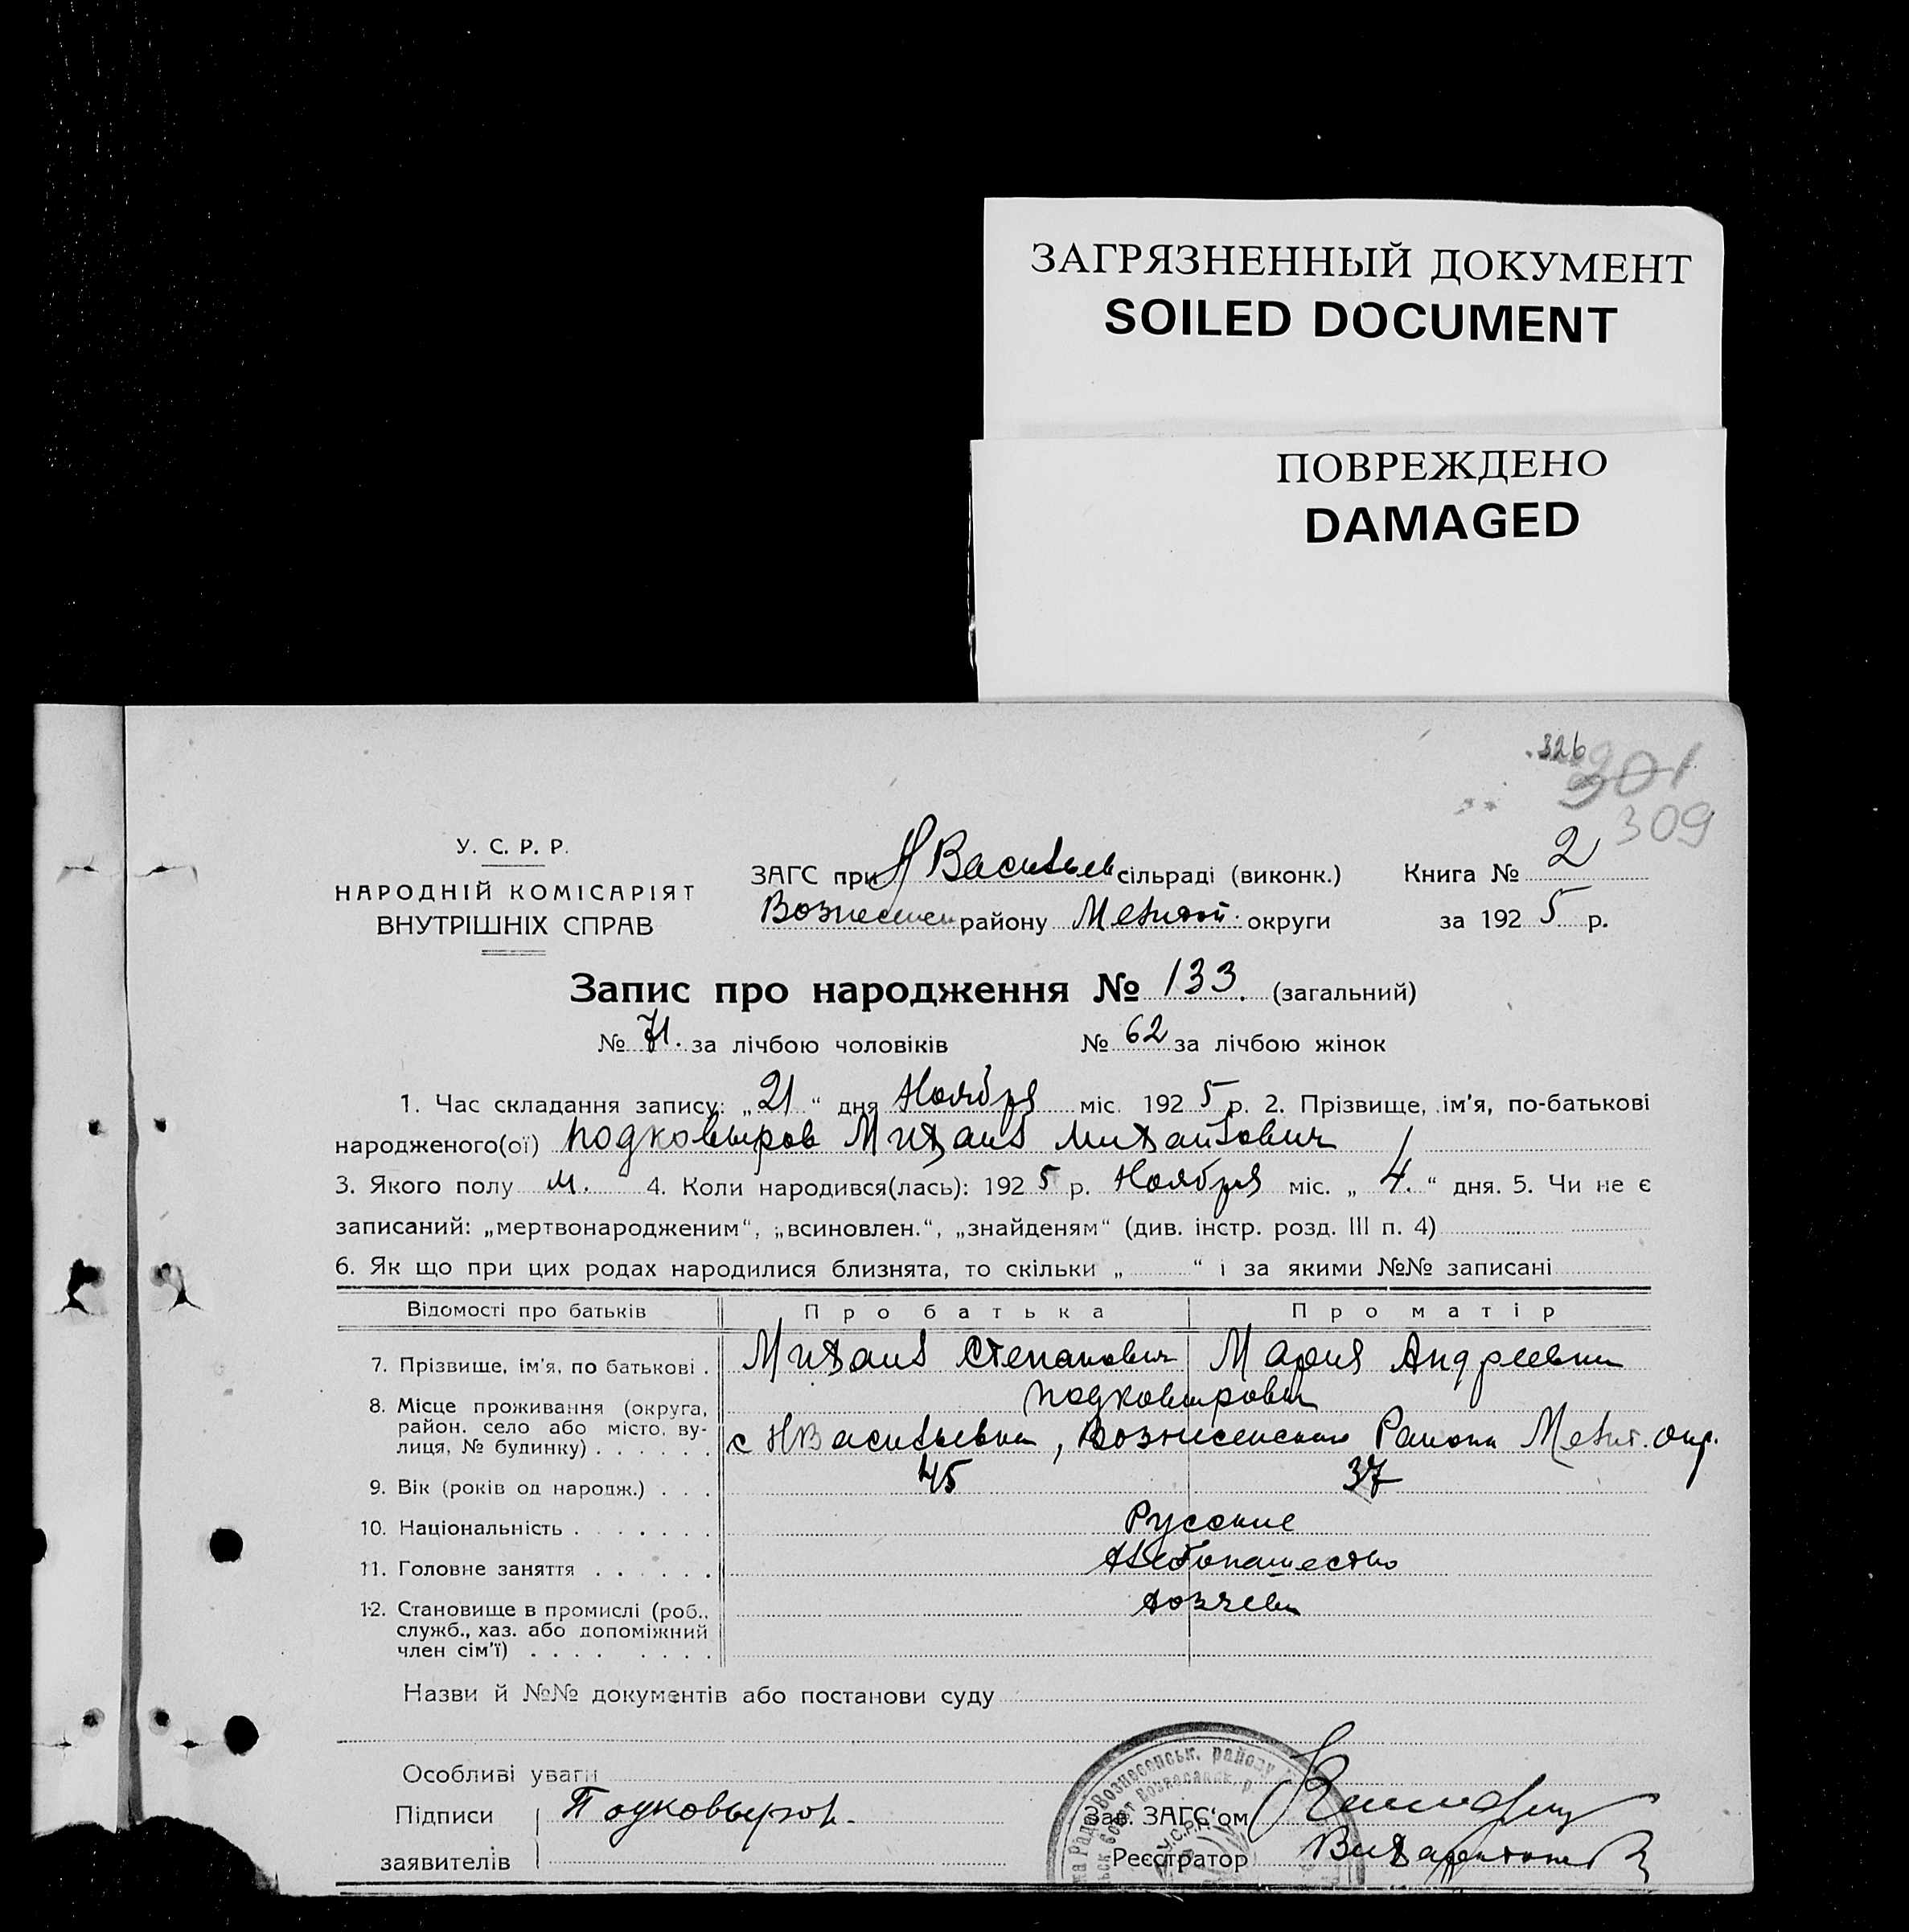 ЗАГРЯЗНЕННЫЙ ДОКУМЕНТ
SOILED DOCUMENT
ПОВРЕЖДЕНО
DAMAGED
326
301
309
У. С. Р. Р.
НАРОДНІЙ КОМІСАРІЯТ
ВНУТРІШНІХ СПРАВ
ЗАГС при Н Васильев сільраді (виконк.)
Вознесенск району Мелитоп. округи
Книга № 2
за 1925 р.
Запис про народження № 133. (загальний)
№ 71. за лічбою чоловіків № 62 за лічбою жінок
1. Час складання запису: „21“ дня Ноября міс. 1925 р. 2. Прізвище, ім'я, по-батькові
народженого(ої) Подковыров Михаил Михайлович
3. Якого полу м. 4. Коли народився(лась): 1925 р. Ноября міс. „4.“ дня. 5. Чи не є
записаний: „мертвонародженим“, „всиновлен.“, „знайденям“ (див. інстр. розд. III п. 4)
6. Як що при цих родах народилися близнята, то скільки „ “ і за якими №№ записані
Відомості про батьків Про батька Про матір
7. Прізвище, ім'я, по батькові . Михаил Степанович Мария Андреевна
Подковыровы
8. Місце проживання (округа,
район. село або місто, ву-
лиця, № будинку) . . . . . . с НВасильевка, Вознесенского Района Мелит. окр.
9. Вік (років од народж.) . . . 45 37
10. Національність . . . . . . . Русские
11. Головне заняття . . . . . . Хлебопашество
12. Становище в промислі (роб.,
служб., хаз. або допоміжний
член сім'ї) . . . . . . . . Хозяева
Назви й №№ документів або постанови суду
Особливі уваги
Підписи Подковыров.
заявителів
Зав. ЗАГС'ом
Реєстратор